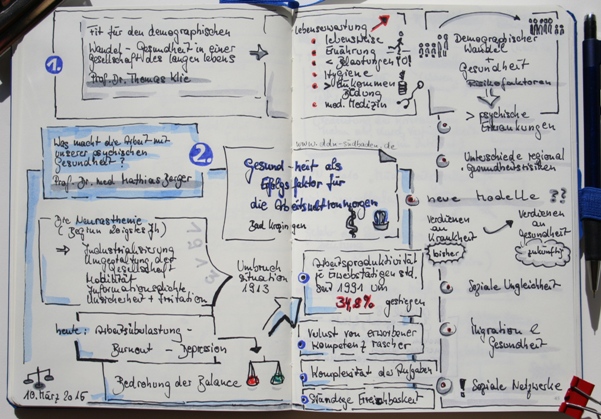 1.
Fit für den demographischen
Wandel - Gesundheit in einer
Gesellschaft des langen Lebens
Prof. Dr. Thomas Klie
2.
Was macht die Arbeit mit
unserer psychischen
Gesundheit?
Prof. Dr. med Mathias Berger
Die Neurasthenie
⇒ Industrialisierung
Umgestaltung der
Gesellschaft
Mobilität
Informationsdichte
Unsicherheit + Irritation
Umbruch
Situation
1913
heute: Arbeitsüberlastung -
Burnout - Depression
Bedrohung der Balance
10. März 2015
Lebenserwartung
Lebensweise
Ernährung
< Belastungen
Hygiene
Einkommen
Bildung
med. Medizin
Gesund-heit als
Erfolgsfaktor für
die Arbeitswelt von morgen
Bad Krozingen
Arbeitsproduktivität
je Erwerbstätigen std.
seit 1991 um
34,8%
gestiegen
Verlust von erworbener
Kompetenz rascher
Komplexität der Aufgaben
Ständige Erreichbarkeit
Demographischer
Wandel
+
Gesundheit
Risikofaktoren
> psychische
Erkrankungen
Unterschiede regional
Gesundheitsrisiken
neue Modelle ??
Verdienen
an
Krankheit
bisher
verdienen
an
Gesundheit
zukünftig
Soziale Ungleichheit
Migration &
Gesundheit
! Soziale Netzwerke